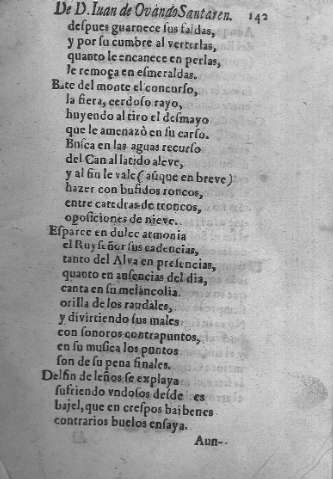 De D. Iuan de Ovándo Santaren. 142
despues guarnece sus faldas,
y por su cumbre al verterlas,
quanto le encanece en perlas,
le remoça en esmeraldas.
Bate del monte el concurso,
la fiera, cerdoso rayo,
huyendo al tiro el desmayo
que le amenazò en su curso.
Busca en las aguas recurso
del Can al latido aleve,
y al fin le vale (aũque en breve)
hazer con bufidos roncos,
entre catedras de troncos,
oposiciones de nieve.
Esparce en dulce armonia
el Ruyseñor sus cadencias,
tanto del Alva en presencias,
quanto en ausencias del dia,
canta en su melancolia
orilla de los raudales,
y divirtiendo sus males
con sonoros contrapuntos,
en su musica los puntos
son de su pena finales.
Delfin de leños se explaya
sufriendo vndosos desde es
bajel, que en crespos baibenes
contrarios buelos ensaya.
Aun-